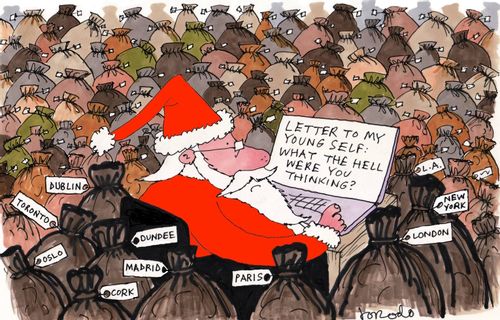 LETTER TO MY
YOUNG SELF:
WHAT THE HELL
WERE YOU
THINKING?
DUBLIN
TORONTO
OSLO
DUNDEE
MADRID
CORK
PARIS
L.A.
NEW
YORK
LONDON